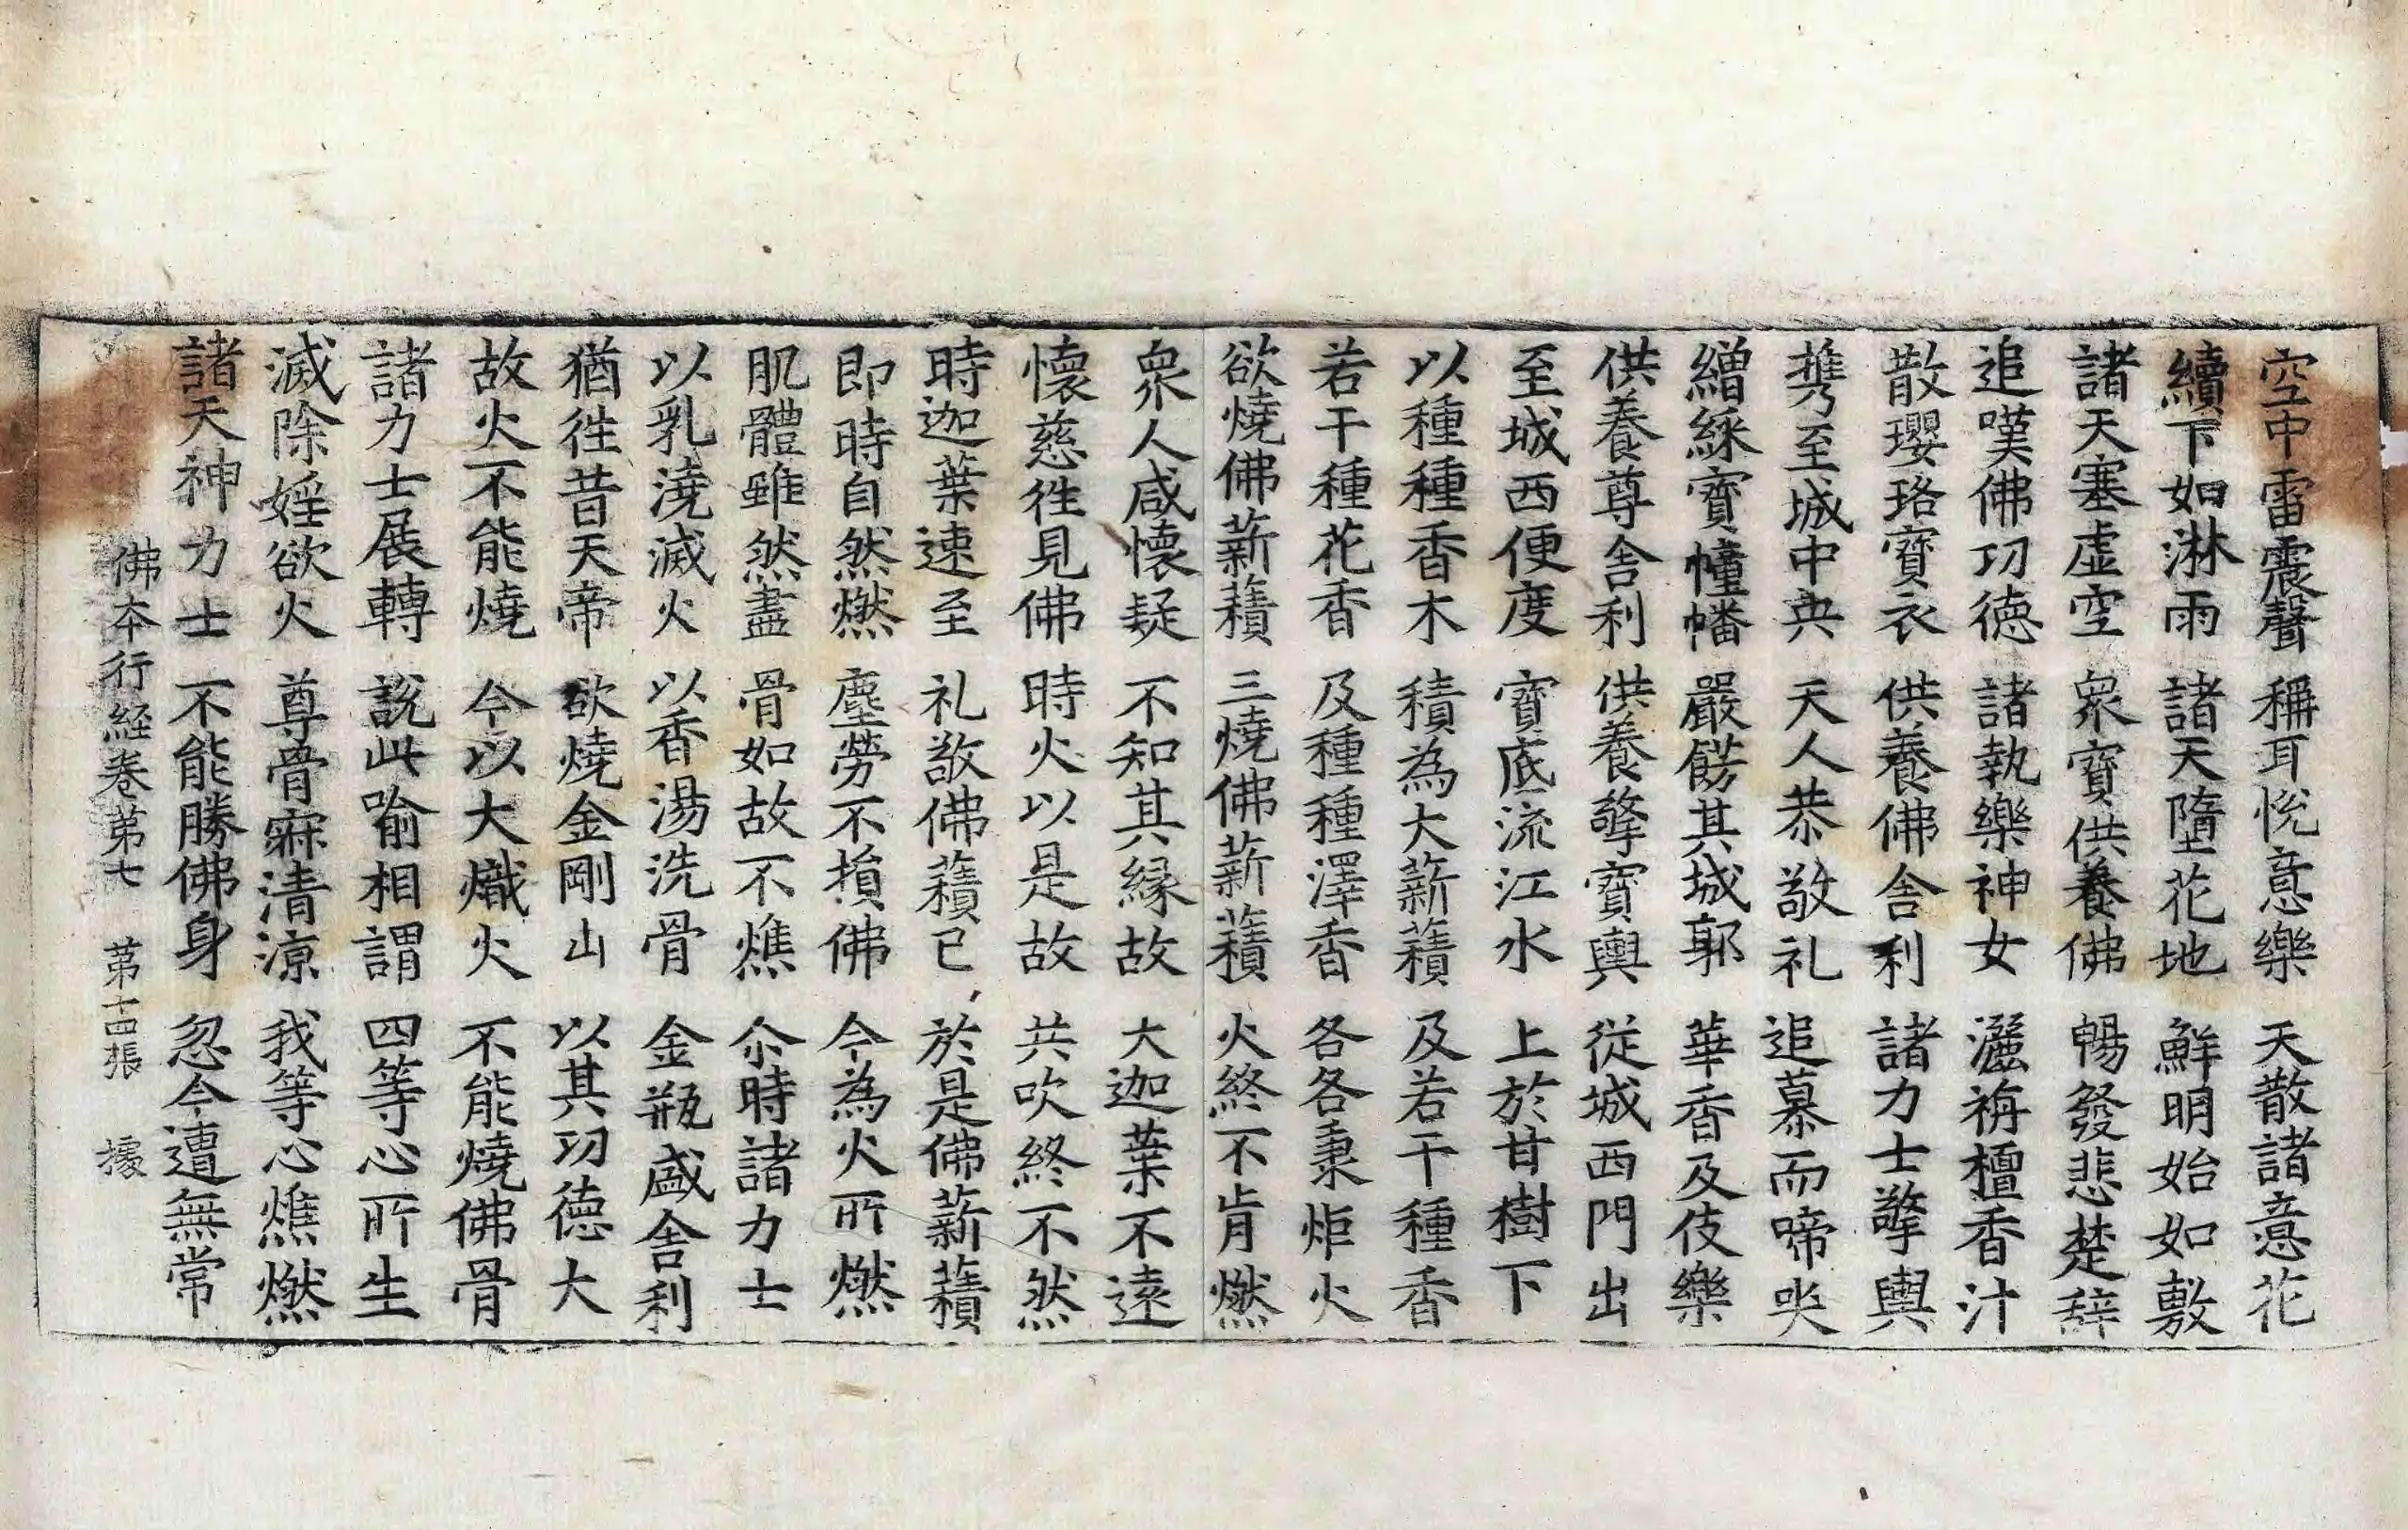 空中雷震聲　稱耳悅意樂　天散諸意花
續下如淋雨　諸天墮花地　鮮明始如敷
諸天塞虛空　衆寶供養佛　暢發悲楚辭
追嘆佛功德　諸執樂神女　灑栴檀香汁
散瓔珞寶衣　供養佛舍利　諸力士擎輿
携至城中央　天人恭敬礼　追慕而啼哭
繒綵寶幢幡　嚴餝其城郭　華香及伎樂
供養尊舍利　供養擎寶輿　從城西門出
至城西便度　寶底流江水　上於甘樹下
以種種香木　積為大薪䕆　及若干種香
若干種花香　及種種澤香　各各秉炬火
欲燒佛薪䕆　三燒佛薪䕆　火終不肯燃
衆人咸懷疑　不知其緣故　大迦葉不遠
懷慈徃見佛　時火以是故　共吹終不然
時迦葉速至　礼敬佛䕆已　於是佛薪䕆
即時自然燃　塵勞不損佛　今為火所燃
肌體雖然盡　骨如故不燋　尒時諸力士
以乳澆滅火　以香湯洗骨　金瓶盛舍利
猶徃昔天帝　欲燒金剛山　以其功德大
故火不能燒　今以大熾火　不能燒佛骨
諸力士展轉　說此喻相謂　四等心所生
滅除婬欲火　尊骨寐清涼　我等心燋燃
諸天神力士　不能勝佛身　忽今遭無常
佛本行經卷第七　第十四張　據